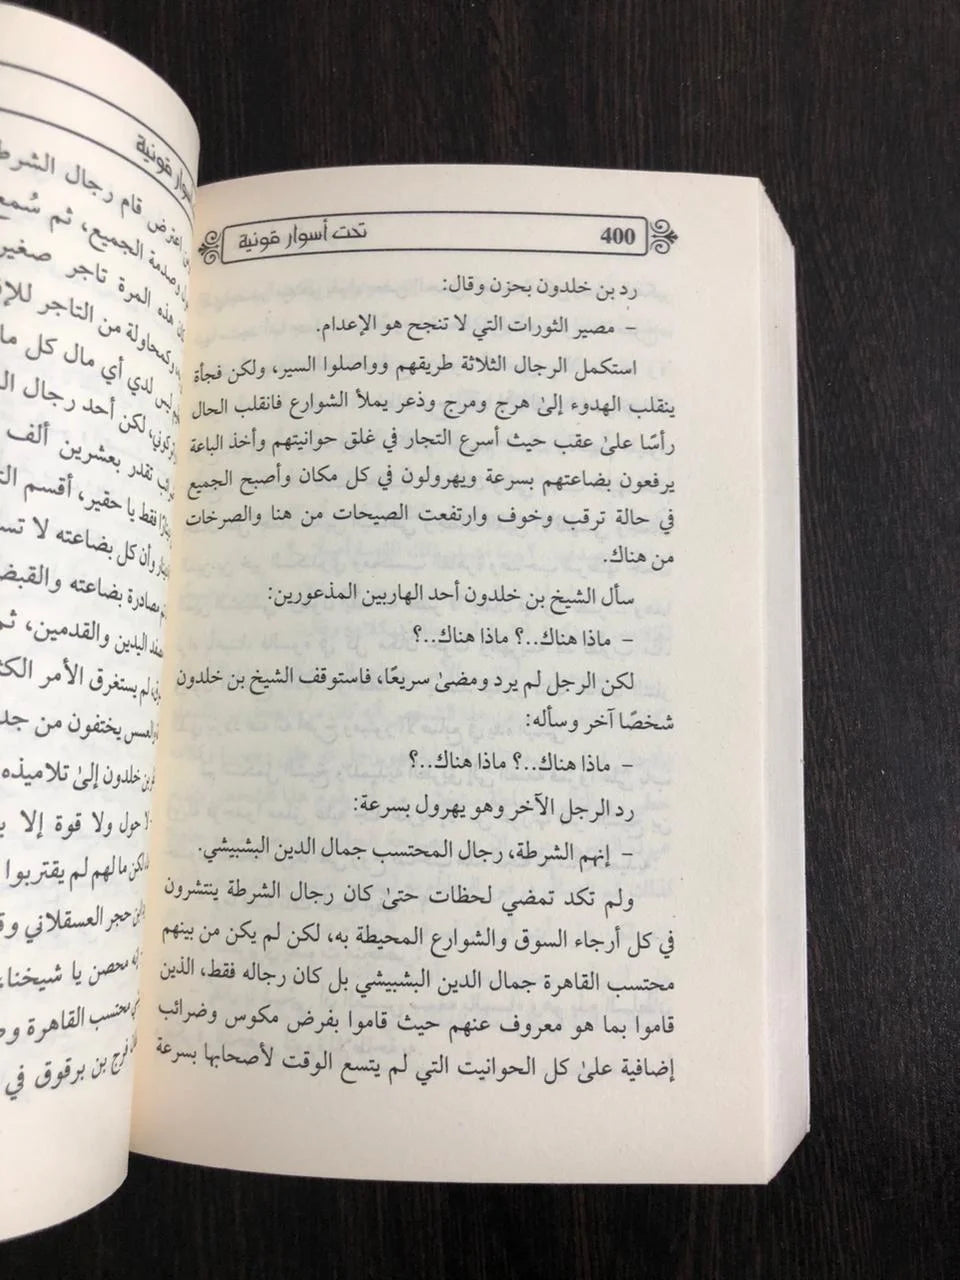 400
تحت أسوار قونية
رد بن خلدون بحزن وقال:
– مصير الثورات التي لا تنجح هو الإعدام.
استكمل الرجال الثلاثة طريقهم وواصلوا السير، ولكن فجأة
ينقلب الهدوء إلىٰ هرج ومرج وذعر يملأ الشوارع فانقلب الحال
رأسًا علىٰ عقب حيث أسرع التجار في غلق حوانيتهم وأخذ الباعة
يرفعون بضاعتهم بسرعة ويهرولون في كل مكان وأصبح الجميع
في حالة ترقب وخوف وارتفعت الصيحات من هنا والصرخات
من هناك.
سأل الشيخ بن خلدون أحد الهاربين المذعورين:
– ماذا هناك..؟ ماذا هناك..؟
لكن الرجل لم يرد ومضىٰ سريعًا، فاستوقف الشيخ بن خلدون
شخصًا آخر وسأله:
– ماذا هناك..؟ ماذا هناك..؟
رد الرجل الآخر وهو يهرول بسرعة:
– إنهم الشرطة، رجال المحتسب جمال الدين البشبيشي.
ولم تكد تمضي لحظات حتىٰ كان رجال الشرطة ينتشرون
في كل أرجاء السوق والشوارع المحيطة به، لكن لم يكن من بينهم
محتسب القاهرة جمال الدين البشبيشي بل كان رجاله فقط، الذين
قاموا بما هو معروف عنهم حيث قاموا بفرض مكوس وضرائب
إضافية علىٰ كل الحوانيت التي لم يتسع الوقت لأصحابها بسرعة
أسوار قونية
اعترض قام رجال
وصدمة الجميع، ثم
هذه المرة تاجر صغير
وكمحاولة من التاجر
ليس لدي أي مال كل
لكن أحد رجال
تقدر بعشرين ألف
فقط يا حقير، أقسم
وأن كل بضاعته لا
مصادرة بضاعته
اليدين والقدمين، ثم
لم يستغرق الأمر
العسس يختفون من
بن خلدون إلىٰ تلاميذه
لا حول ولا قوة إلا
لكن ما لهم لم يقتربوا
بن حجر العسقلاني
محصن يا شيخنا،
محتسب القاهرة
فرج بن برقوق في